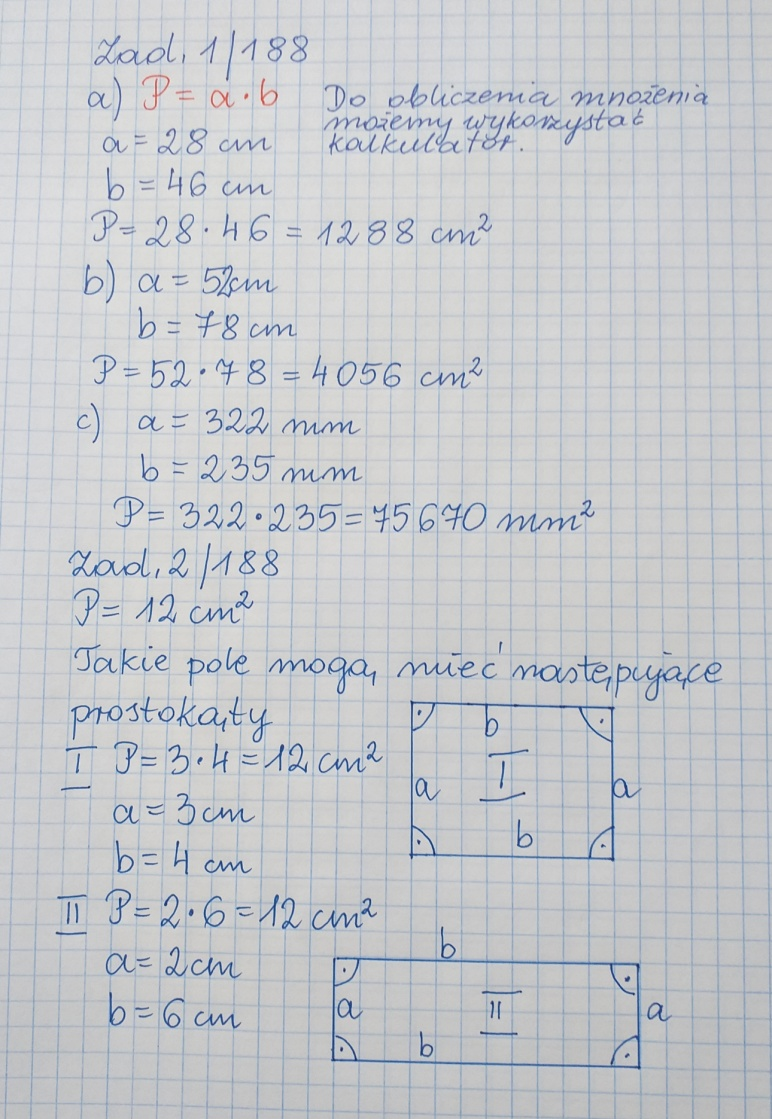 Zad. 1/188
a) P = a·b Do obliczenia mnożenia
możemy wykorzystać
a = 28 cm kalkulator.
b = 46 cm
P = 28·46 = 1288 cm²
b) a = 52cm
b = 78 cm
P = 52·78 = 4056 cm²
c) a = 322 mm
b = 235 mm
P = 322·235 = 75670 mm²
Zad. 2/188
P = 12 cm²
Takie pole mogą mieć następujące
prostokąty
I P = 3·4 = 12 cm²
a = 3 cm
b = 4 cm
b
a I a
b
II P = 2·6 = 12 cm²
a = 2 cm
b = 6 cm
b
a II a
b